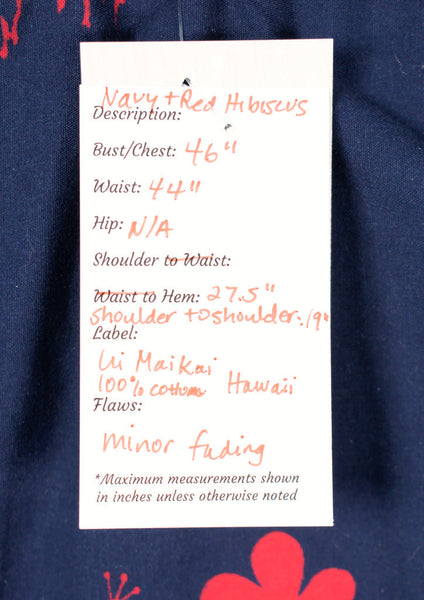 Navy + Red Hibiscus
Description:
Bust/Chest: 46"
Waist: 44"
Hip: N/A
Shoulder to Waist:
Waist to Hem: 27.5"
shoulder to shoulder: 19"
Label:
Ui Maikai
100% cotton Hawaii
Flaws:
minor fading
*Maximum measurements shown
in inches unless otherwise noted